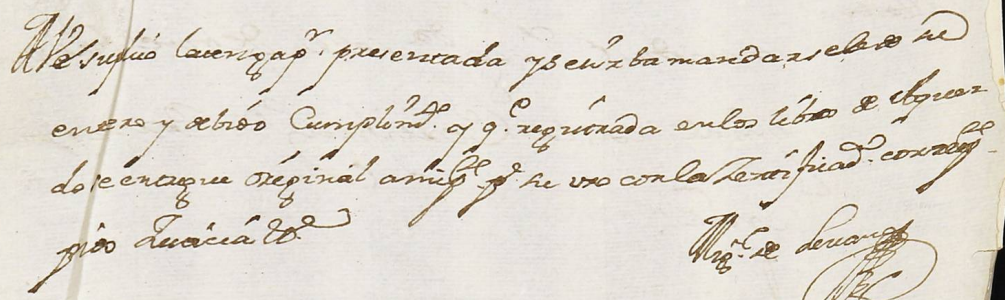 suplico la tenga pr. presentada y se sirba mandar se le de su
entero y debido Cumplimto. y q.e registrada en los libros de Acuer
do se entregue Original a mi pte. pa. su uso con la Zertificad.n corresp
pido Justicia &a.
Migl. de